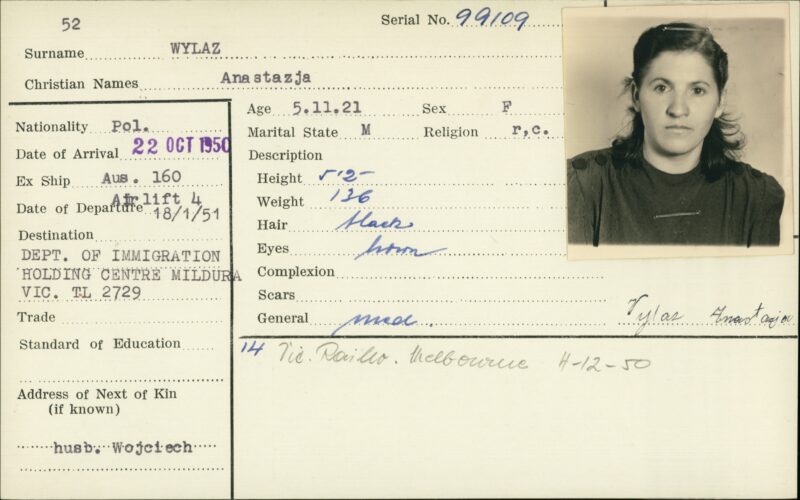 52
Serial No. 99109
Surname WYLAZ
Christian Names Anastazja
Nationality Pol.
Date of Arrival 22 OCT 1950
Ex Ship Aus. 160
Airlift 4
Date of Departure 18/1/51
Destination
DEPT. OF IMMIGRATION
HOLDING CENTRE MILDURA
VIC. TL 2729
Trade
Standard of Education
Address of Next of Kin
(if known)
husb. Wojciech
Age 5.11.21 Sex F
Marital State M Religion r,c.
Description
Height 5'2"
Weight 136
Hair black
Eyes brown
Complexion
Scars
General med.
Vylaz Anastazja
14 Vic. Railw. Melbourne 4-12-50